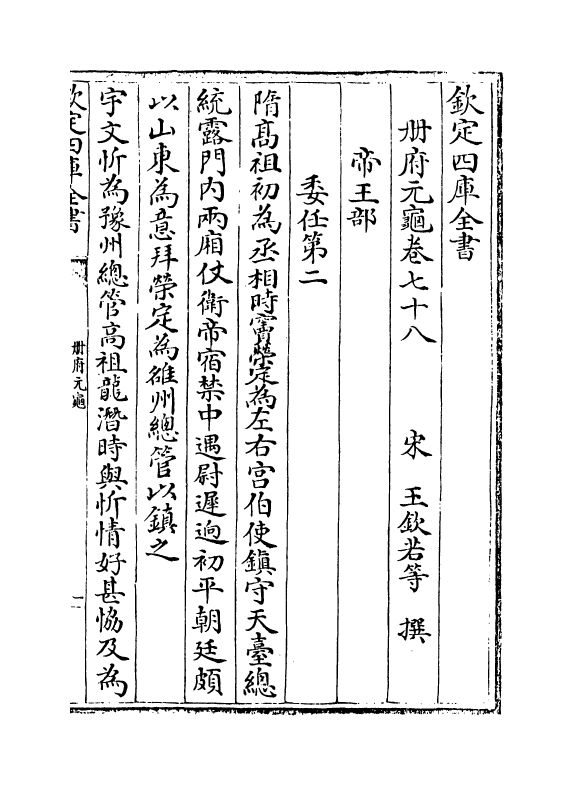 欽定四庫全書
冊府元龜卷七十八　宋　王欽若等　撰
帝王部
委任第二
隋髙祖初為丞相時竇榮定為左右宫伯使鎮守天臺總
統露門内兩廂仗衛帝宿禁中遇尉遲逈初平朝廷頗
以山東為意拜榮定為雒州總管以鎮之
宇文忻為豫州總管高祖龍潛時與忻情好甚恊及為
欽定四庫全書
冊府元龜